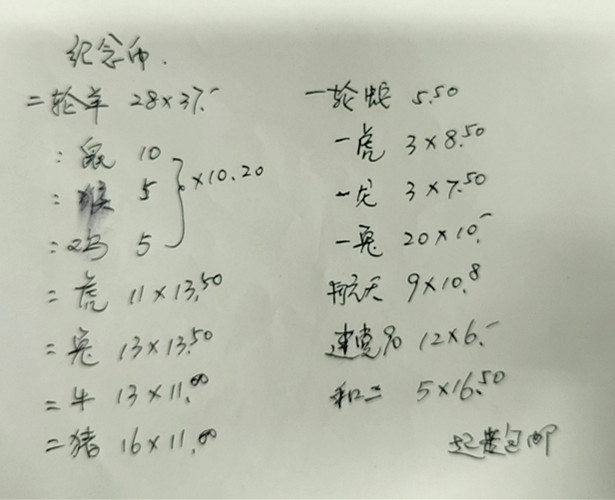 纪念币.
二轮羊 28×37.-
: 鼠 10
: 猴 5
: 鸡 5
×10.20
= 虎 11×13.50
= 兔 13×13.50
= 牛 13×11.00
= 猪 16×11.00
一轮蛇 5.50
一虎 3×8.50
一龙 3×7.50
一兔 20×10.-
航天 9×10.8
建党90 12×6.-
和二 5×16.50
包邮